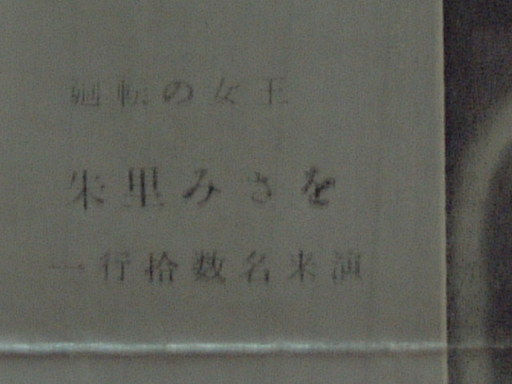 廻転の女王
朱里みさを
一行拾数名来演